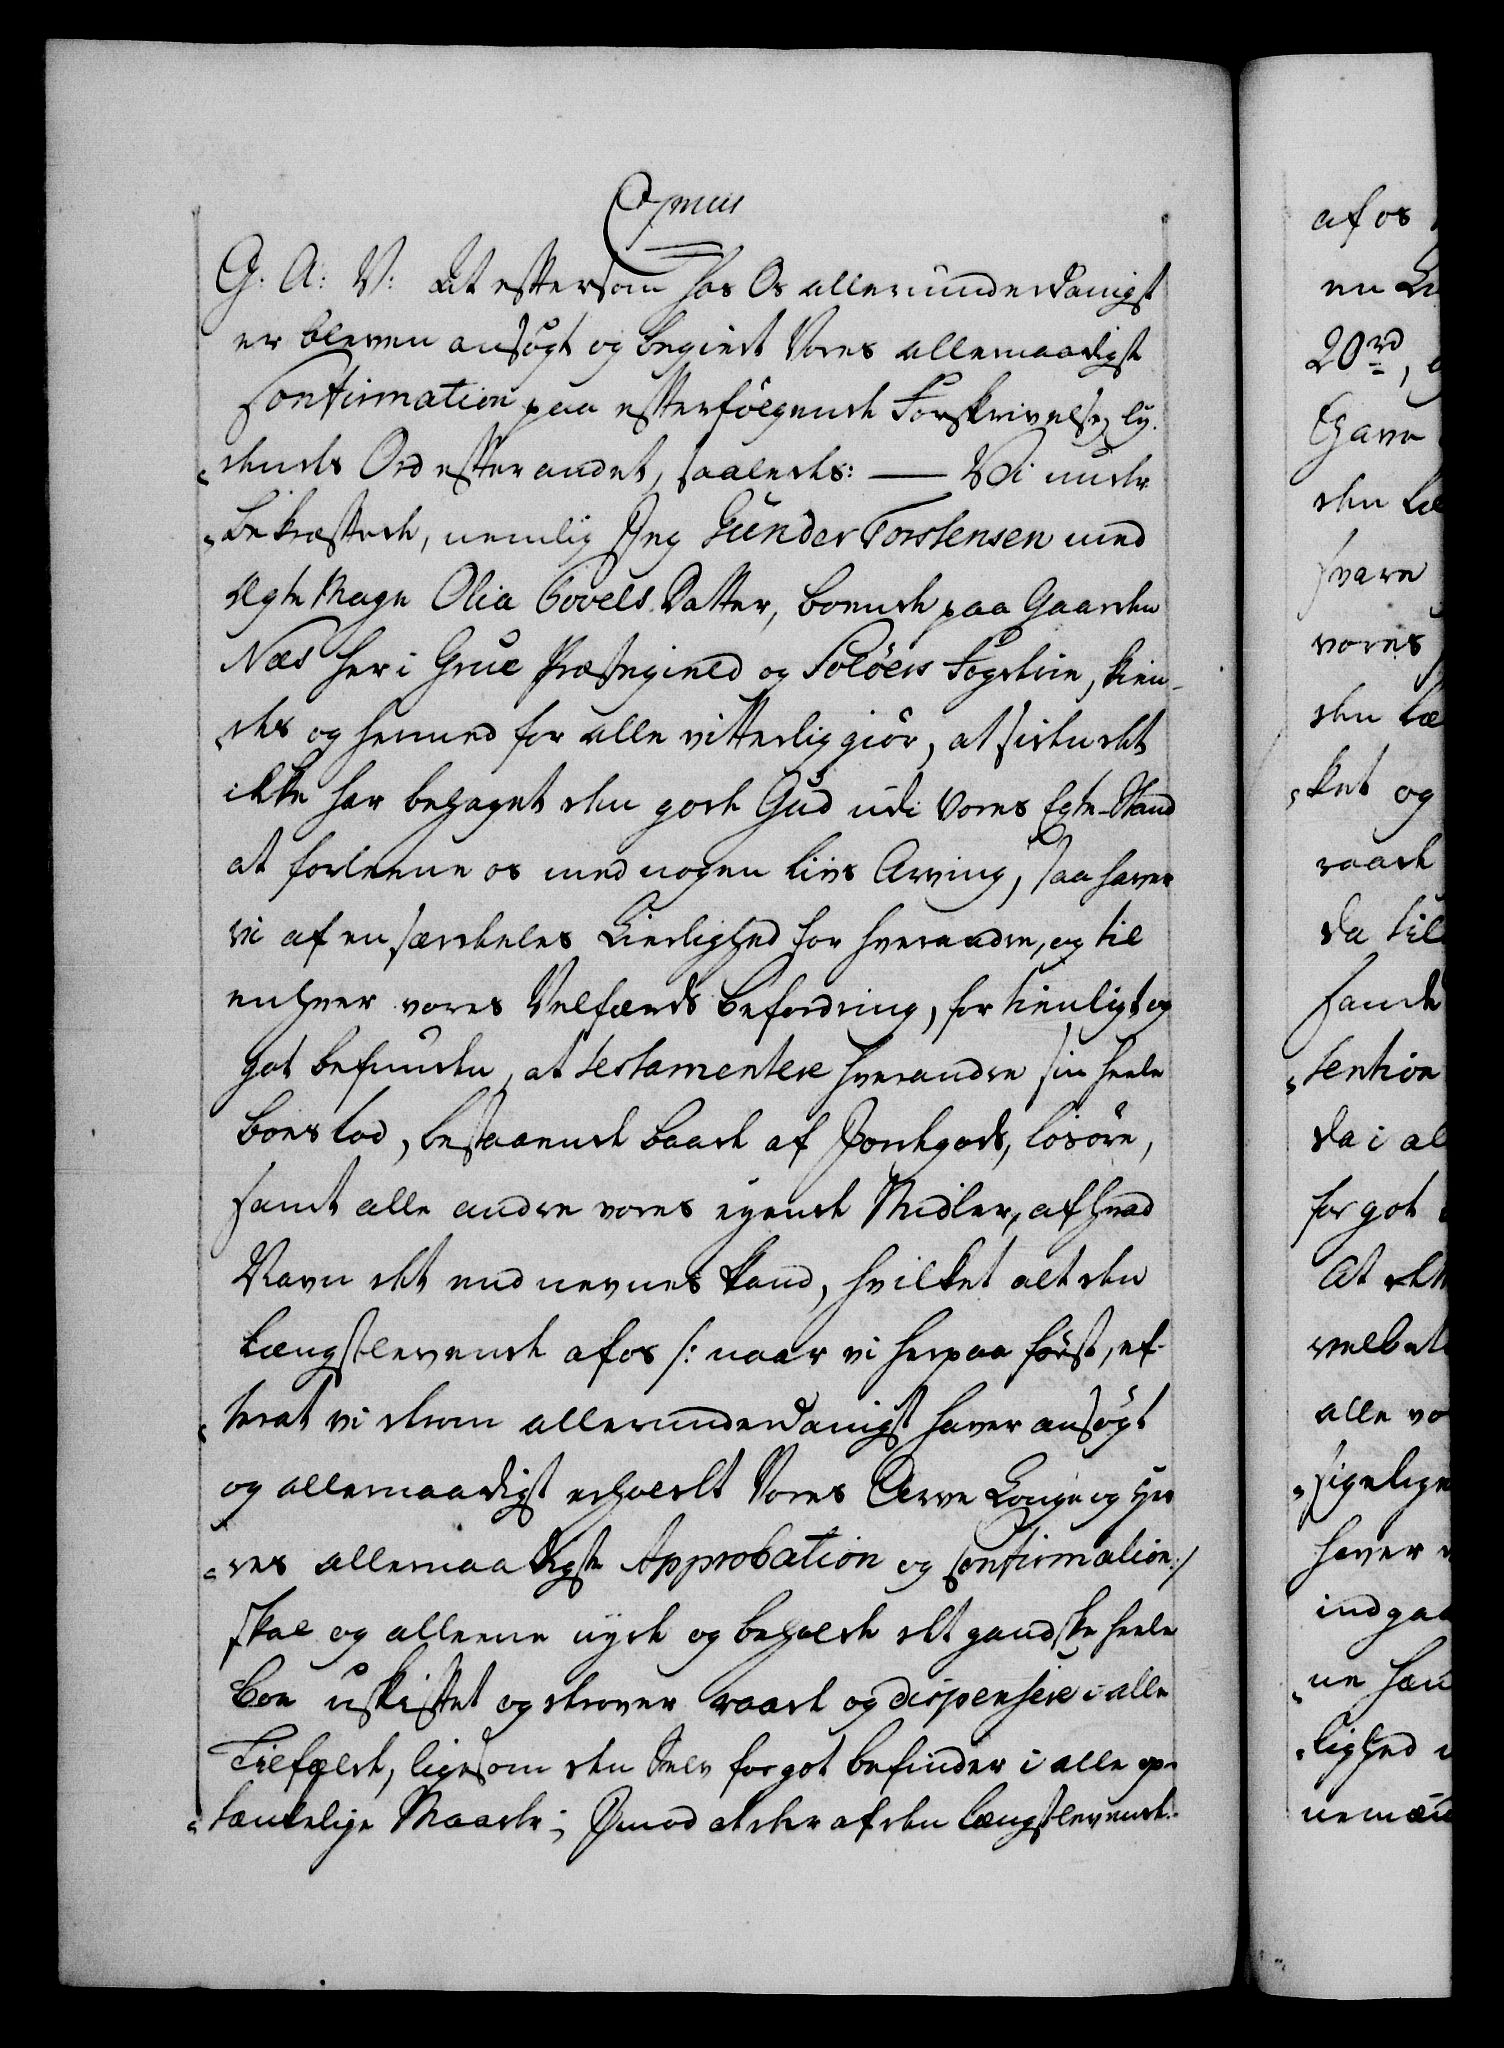 G: A: V: At eftersom hos Os allerunderdanigst
er bleven ansøgt og begiert Vores allernaadigste
Confirmation paa efterfølgende Forskrivelse, ly-
dende Ord efter andet, saaledes: — Vi under
bekræftede, nemlig Jeg Gunder Torstensen med
Ægte Mage Olia Povels Datter, boende paa Gaarden
Næs her i Grue Præstegield og Soløers Fogderie, kien-
des og hermed for alle vitterlig giør, at siden det
ikke har behaget den gode Gud udi Vores Egte-Stand
at forleene os med nogen Livs Arving, saa haver
vi af en særdeles Kierlighed for hverandre, og til
enhver vores Velfærds befordring, for tienligt og
got befunden, at testamentere hverandre sin heele
Boes lod, bestaaende baade af Jordegods, løsøre,
samt alle andre vores eyende Midler, af hvad
Navn det end nevnes kand, hvilket alt den
længstlevende af os /: naar vi herpaa først, ef-
terat vi derom allerunderdanigst haver ansøgt
og allernaadigst erholdt Vores Arve Konge og Her
res allernaadigste Approbation og Confirmation :/
skal og alleene nyde og beholde det gandske heele
Boe uskiftet og derover raade og dispensere i alle
Tilfælde, ligesom den selv for got befinder i alle op-
tænkelige Maader; Imod at der af den længstlevende
af os
en
20rd,
Gave
den
svare
vores
den læ
ket og
raade
da til
tention
da i al
for got
At
alle vo
sigelige
haver
indgaa
lighed